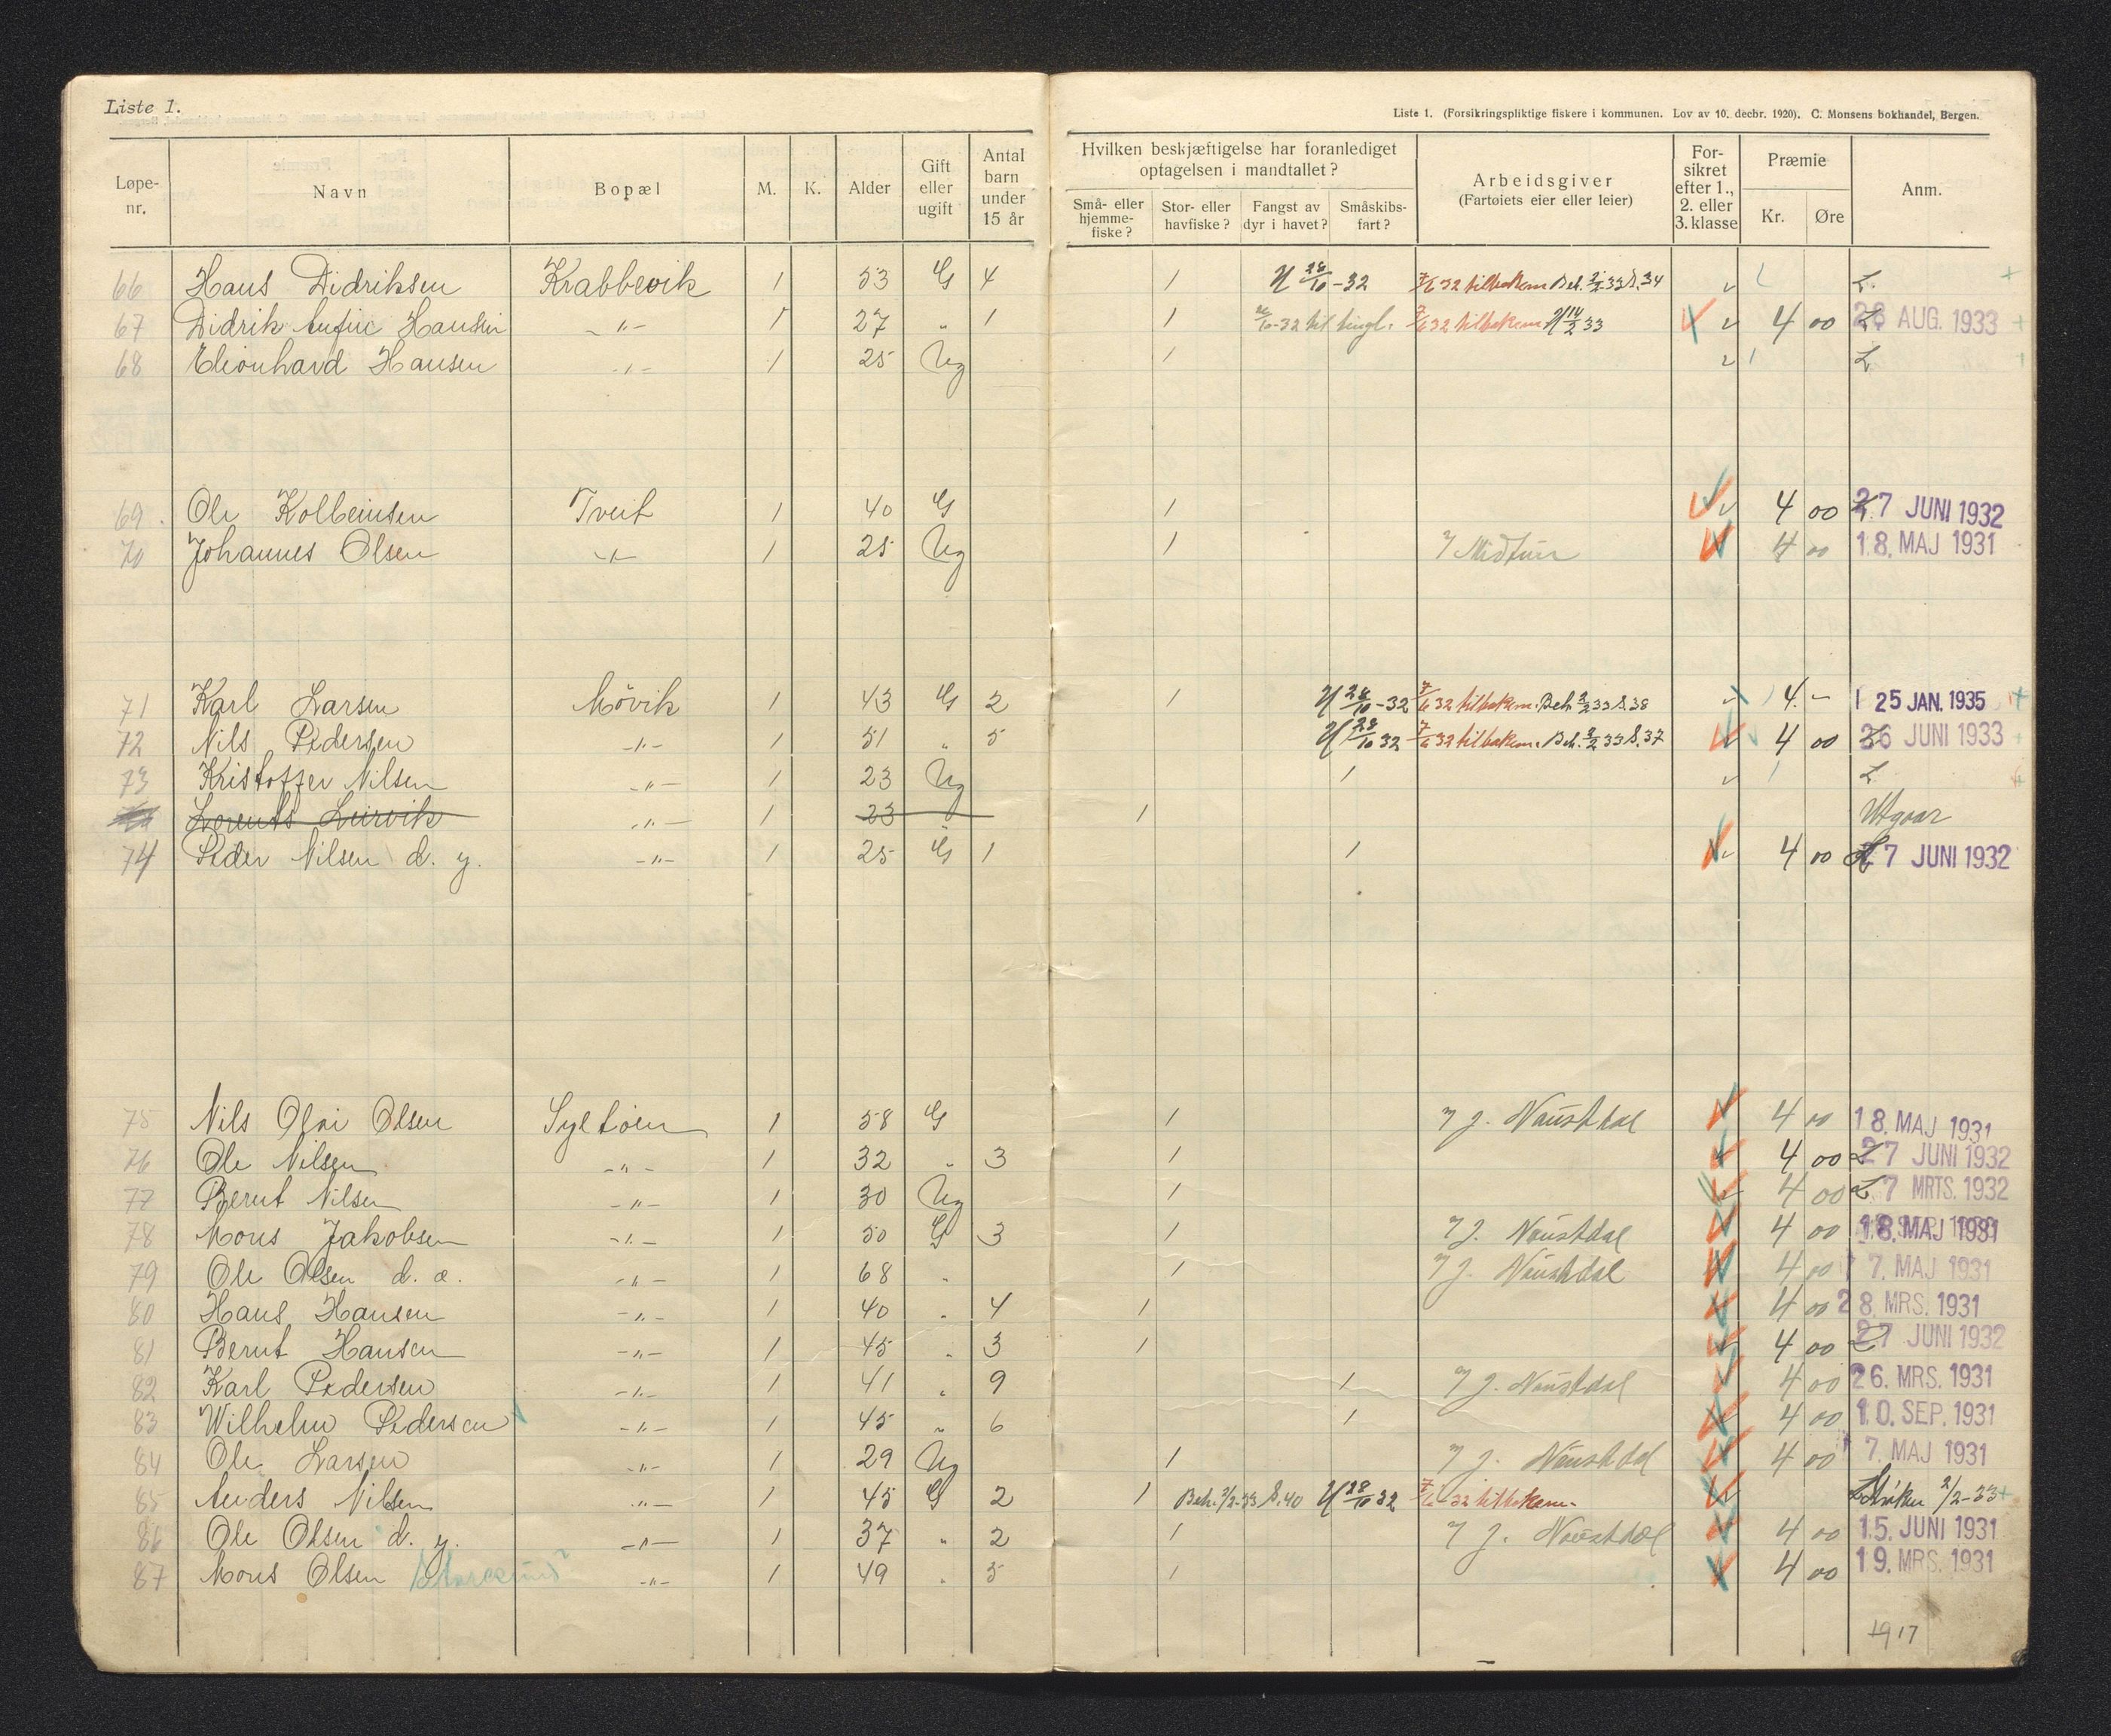 Liste 1.
Liste 1. (Forsikringspliktige fiskere i kommunen. Lov av 10. decbr. 1920). C. Monsens bokhandel, Bergen.
Løpe-nr. Navn Bopæl M. K. Alder Gift eller ugift Antal barn under 15 år Hvilken beskjæftigelse har foranlediget optagelsen i mandtallet? Små- eller hjemme-fiske? Stor- eller havfiske? Fangst av dyr i havet? Småskibs-fart? Arbeidsgiver (Fartøiets eier eller leier) For-sikret efter 1., 2. eller 3. klasse Præmie Kr. Øre Anm.
66 Hans Didriksen Krabbevik 1 53 G 4 1 28/10-32 7/6 32 tilbakem. Beh. 2/2-33 S. 34 L.
67 Didrik Hansen -"- 1 27 " 1 1 7/6 32 tilbakem 14/2 33 4 00 28 AUG. 1933
68 Hansen -"- 1 25 Ug 1 L
69 Ole Kolbeinsen Tveit 1 40 G 1 4 00 27 JUNI 1932
70 Johannes Olsen -"- 1 25 Ug 1 4 00 18. MAJ 1931
71 Karl Larsen Mövik 1 43 G 2 1 28/10-32 7/6 32 tilbakem. Beh. 2/2 33 S. 38 4. - 25 JAN. 1935
72 Nils Pedersen -"- 1 51 " 5 28/10 32 7/6 32 tilbakem. Beh. 2/2 33 S. 37 4 00 26 JUNI 1933
73 Kristoffer Nilsen -"- 1 23 Ug 1 L
Lorents Leirvik -"- 1 23 " 1 Utgaar
74 Peder Nilsen d. y. -"- 1 25 G 1 1 4 00 27 JUNI 1932
75 Nils Olai Olsen Syltöen 1 58 G 1 J. Naustdal 4 00 18. MAJ 1931
76 Ole Nilsen -"- 1 32 " 3 1 4 00 27 JUNI 1932
77 Bernt Nilsen -"- 1 30 Ug 1 4 00 7 MRTS. 1932
78 Mons Jakobsen -"- 1 50 G 3 1 J. Naustdal 4 00 18. MAJ 1931
79 Ole Olsen d. e. -"- 1 68 " 1 J. Naustdal 4 00 7. MAJ 1931
80 Hans Hansen -"- 1 40 " 4 1 4 00 28. MRS. 1931
81 Bernt Hansen -"- 1 45 " 3 1 4 00 27 JUNI 1932
82 Karl Pedersen -"- 1 41 " 9 1 J. Naustdal 4 00 26. MRS. 1931
83 Wilhelm Pedersen -"- 1 45 " 6 1 4 00 10. SEP. 1931
84 Ole Larsen -"- 1 29 Ug 1 J. Naustdal 4 00 7. MAJ 1931
85 Anders Nilsen -"- 1 45 G 2 1 Beh. 2/2-33 S. 40 28/10 32 7/6-32 tilbakem. 2/2-33
86 Ole Olsen d. y. -"- 1 37 " 2 1 J. Naustdal 4 00 15. JUNI 1931
87 Mons Olsen -"- 1 49 " 5 1 4 00 19. MRS. 1931